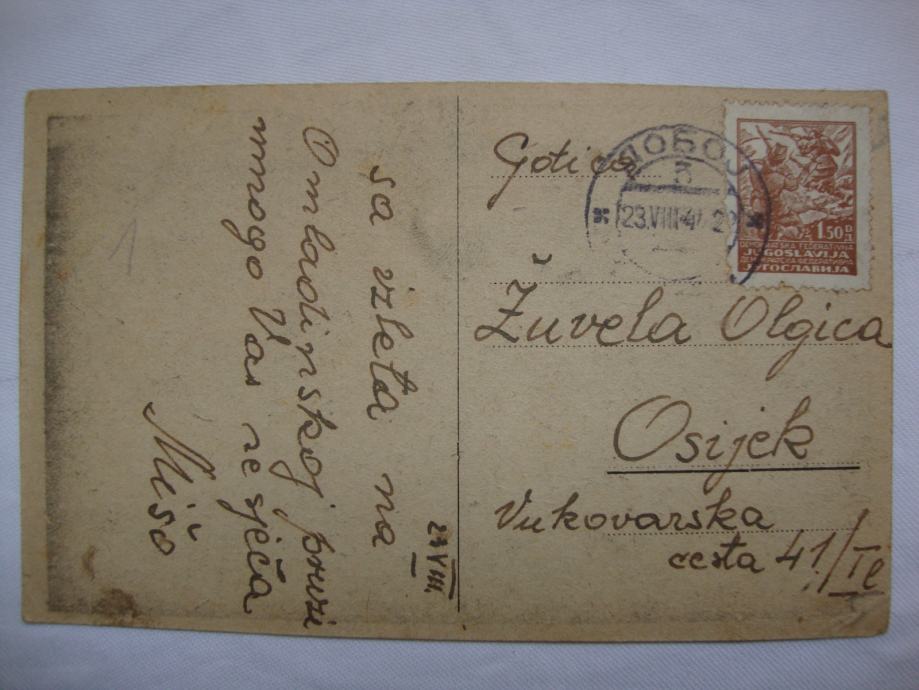 23 VIII.
sa izleta na
Omladinskoj pruzi
mnogo Vas se sjeća
Mišo
1
Gđica
Žuvela Olgica
Osijek
Vukovarska
cesta 41/I
ДОБОЈ
23.VIII
1.50 D
Д
DEMOKRATSKA FEDERATIVNA
JUGOSLAVIJA
ДЕМОКРАТСКА ФЕДЕРАТИВНА
ЈУГОСЛАВИЈА